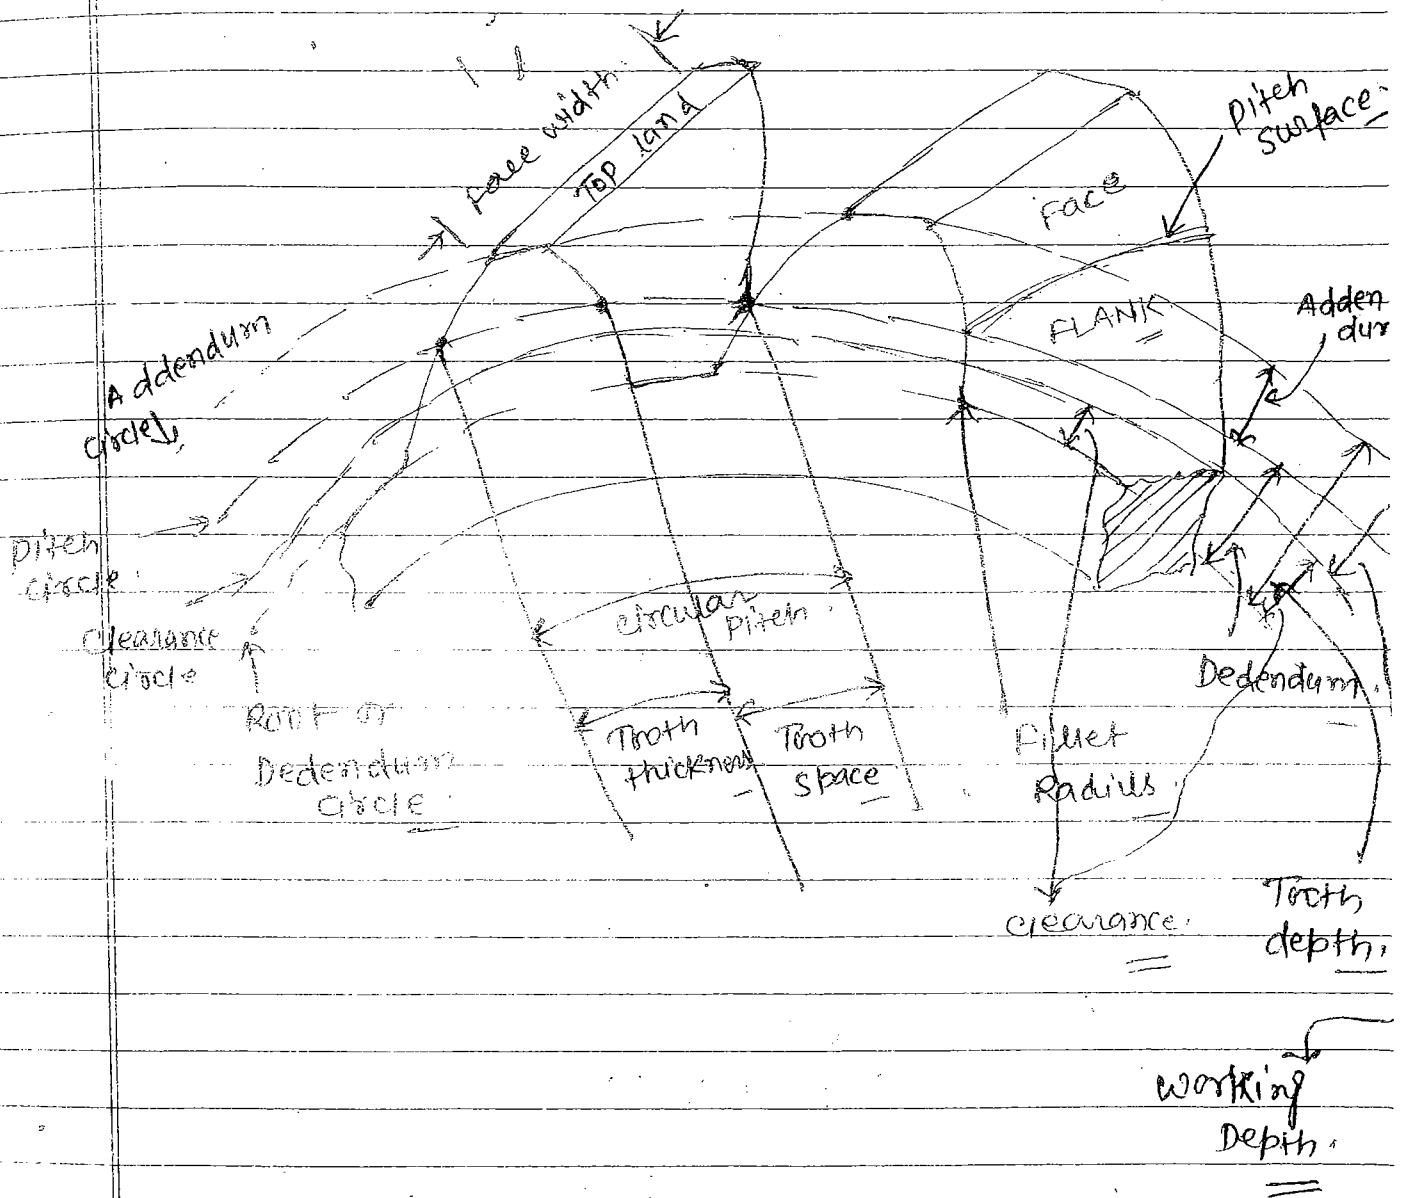 Face width.
Top land
Pitch
surface.
Face
FLANK
Adden
dur
Addendum
circle
Pitch
circle.
Clearance
circle
Root or
Dedendum
circle.
circular
pitch.
Tooth
thickness
Tooth
space
Fillet
Radius.
Dedendum.
clearance.
Tooth
depth.
Working
Depth.